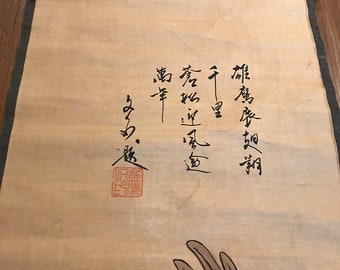 雄鷹展翅翔
千里
蒼松迎風逾
萬年
題